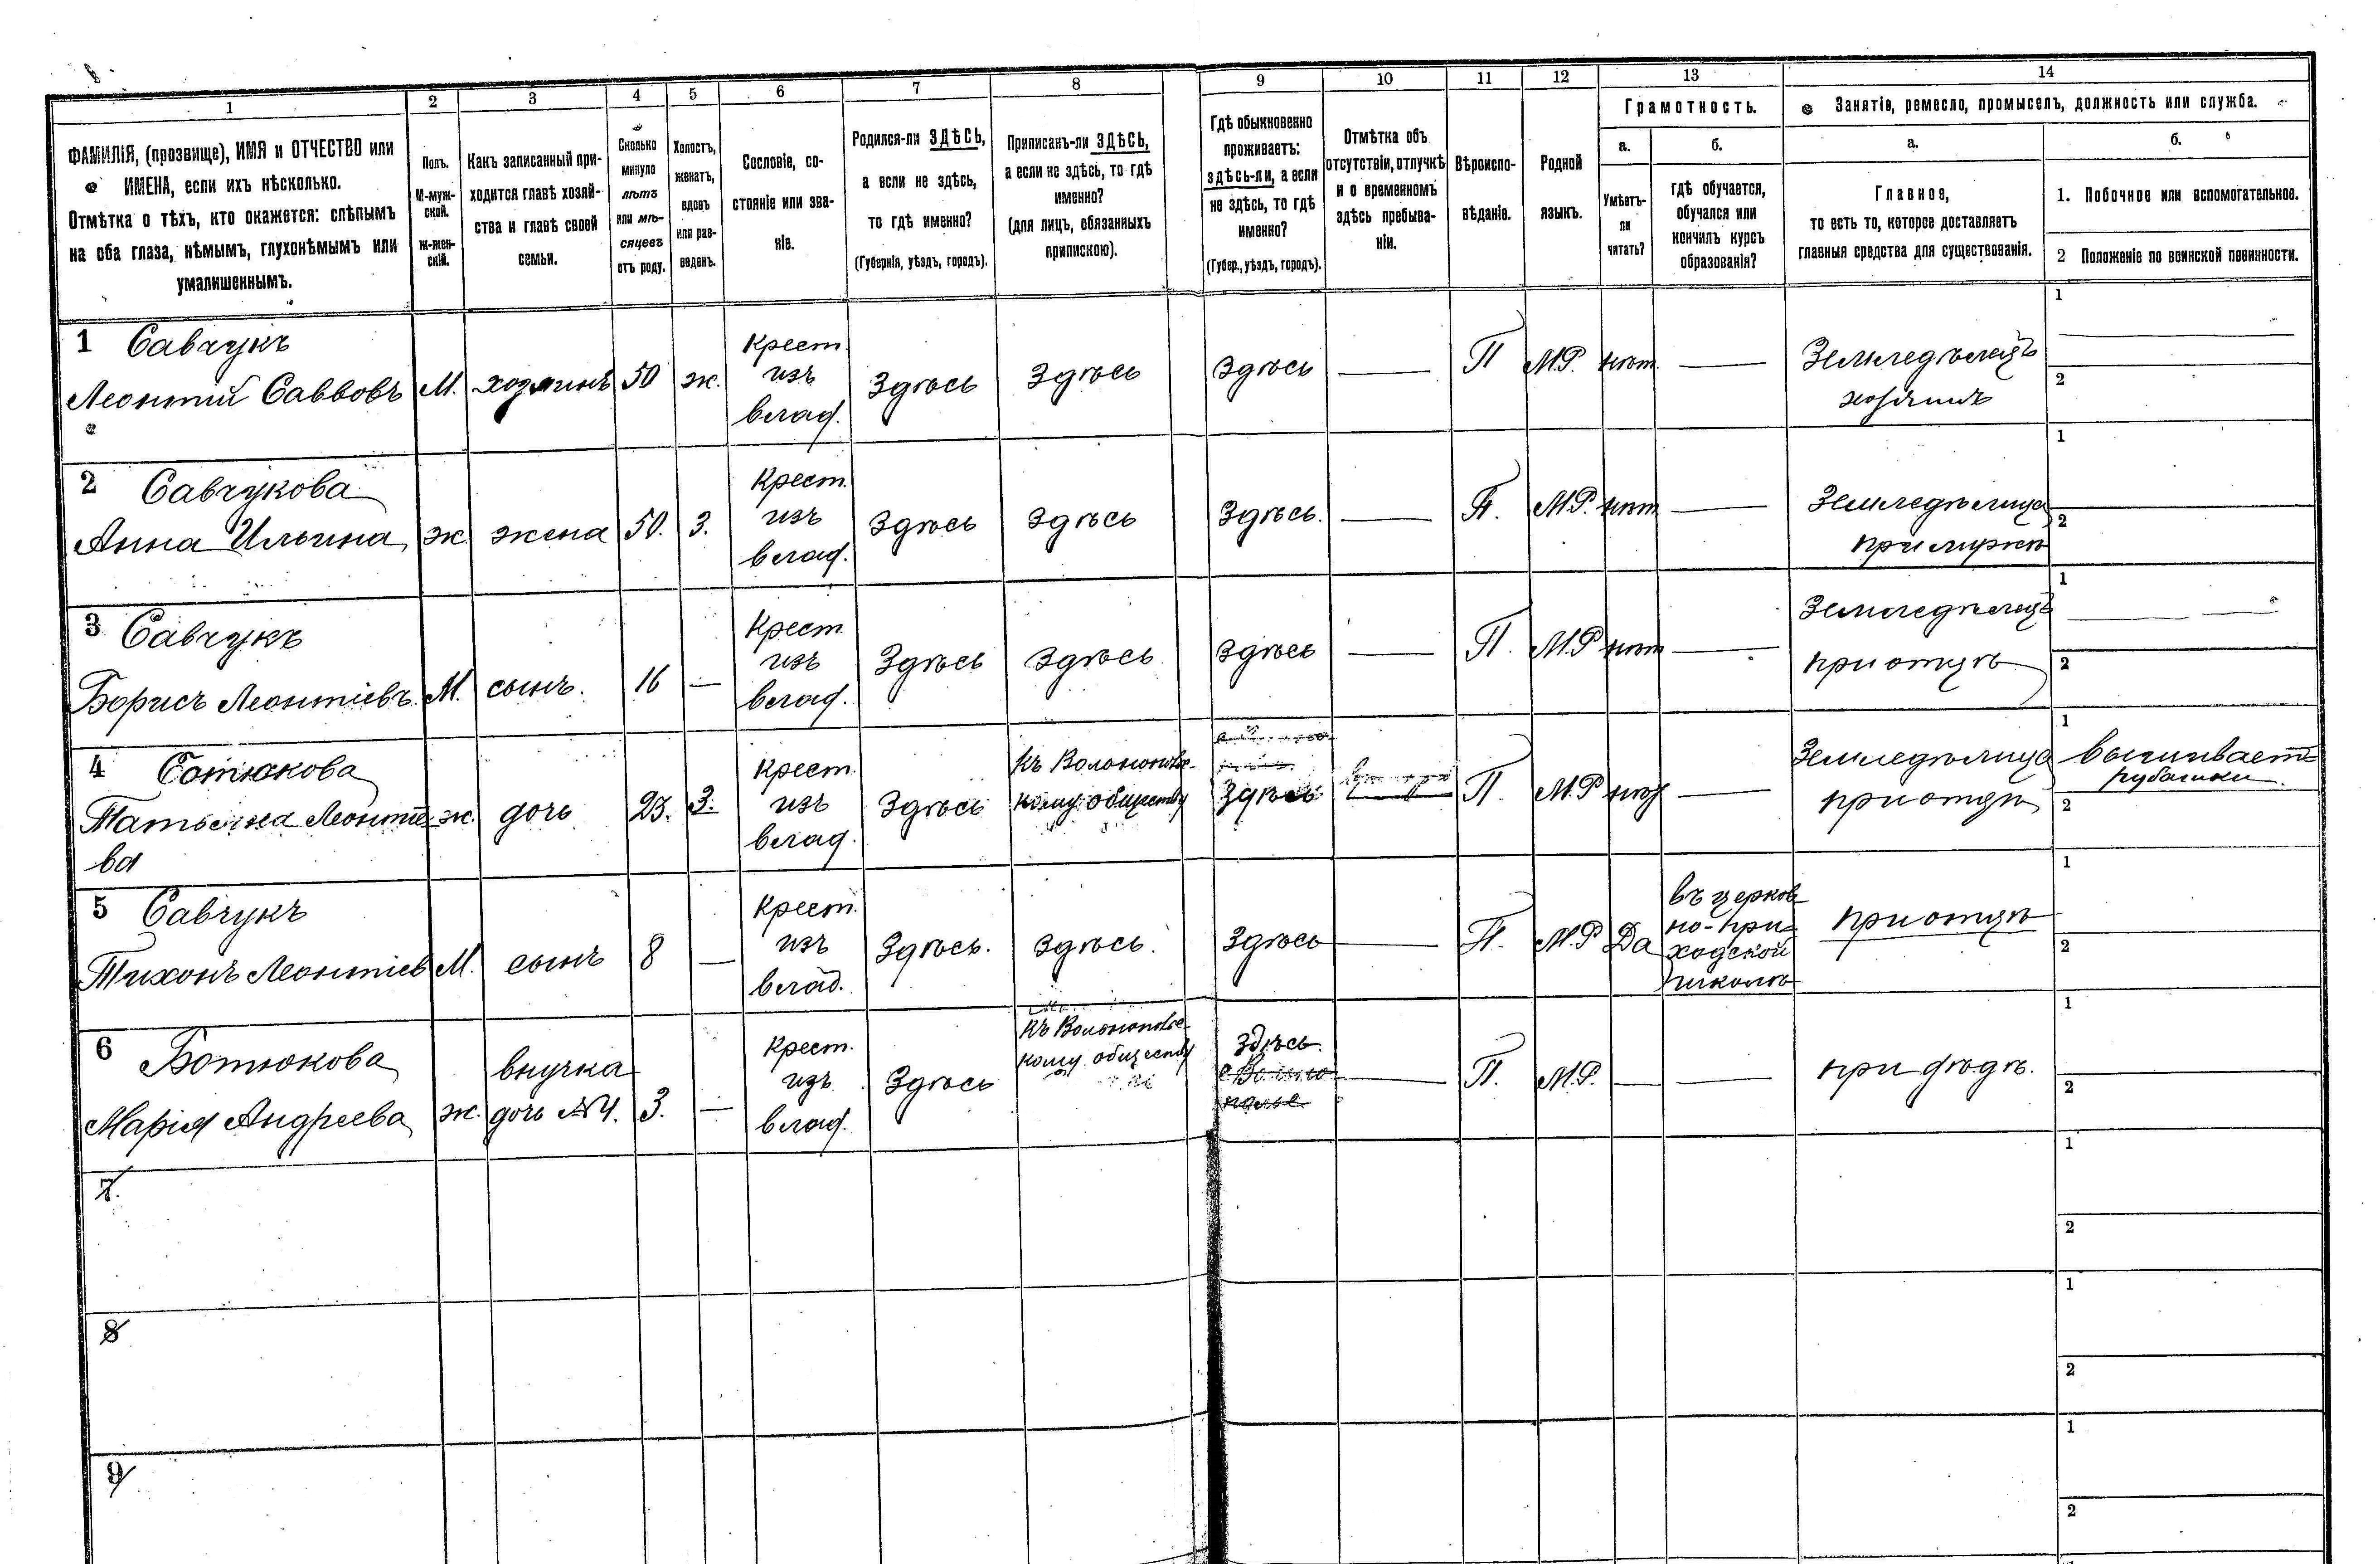 1 2 3 4 5 6 7 8 9 10 11 12 13 14
ФАМИЛІЯ, (прозвище), ИМЯ и ОТЧЕСТВО или
ИМЕНА, если ихъ нѣсколько.
Отмѣтка о тѣхъ, кто окажется: слѣпымъ
на оба глаза, нѣмымъ, глухонѣмымъ или
умалишеннымъ.
Полъ.
М-муж-
ской.
ж-жен-
скій.
Какъ записанный при-
ходится главѣ хозяй-
ства и главѣ своей
семьи.
Сколько
минуло
лѣтъ
или мѣ-
сяцевъ
отъ роду.
Холостъ,
женатъ,
вдовъ
или раз-
веденъ.
Сословіе, со-
стояніе или зва-
ніе.
Родился-ли ЗДѢСЬ,
а если не здѣсь,
то гдѣ именно?
(Губернія, уѣздъ, городъ).
Приписанъ-ли ЗДѢСЬ,
а если не здѣсь, то гдѣ
именно?
(для лицъ, обязанныхъ
припискою).
Гдѣ обыкновенно
проживаетъ:
здѣсь-ли, а если
не здѣсь, то гдѣ
именно?
(Губер., уѣздъ, городъ).
Отмѣтка объ
отсутствіи, отлучкѣ
и о временномъ
здѣсь пребыва-
ніи.
Вѣроиспо-
вѣданіе.
Родной
языкъ.
Грамотность.
а.
Умѣетъ-
ли
читать?
б.
гдѣ обучается,
обучался или
кончилъ курсъ
образованія?
Занятіе, ремесло, промыселъ, должность или служба.
а.
Главное,
то есть то, которое доставляетъ
главныя средства для существованія.
б.
1. Побочное или вспомогательное.
2 Положеніе по воинской повинности.
1 Савчукъ
Леонтій Саввовъ
М.
хозяинъ
50
ж.
Крест.
изъ
влад.
Здѣсь
Здѣсь
Здѣсь
П
М.Р.
нѣт
Земледѣлецъ
хозяинъ
1
2
2 Савчукова
Анна Ильина
ж
жена
50.
З.
Крест.
изъ
влад.
Здѣсь
Здѣсь
Здѣсь.
П.
М.Р.
нѣт
Земледѣлица
при мужѣ
1
2
3 Савчукъ
Борисъ Леонтіевъ
М.
сынъ.
16
Крест.
изъ
влад.
Здѣсь
Здѣсь
Здѣсь
П.
М.Р
нѣт
Земледѣлецъ
при отцѣ
1
2
4
Татьяна Леонтіе-
ва
ж.
дочь
23.
З.
Крест.
изъ
влад.
Здѣсь
Къ
кому обществу
Здѣсь
П.
М.Р
нѣт
Земледѣлица
при отцѣ
1
вышиваетъ
рубашки
2
5 Савчукъ
Тихонъ Леонтіев
М.
сынъ
8
Крест.
изъ
влад.
Здѣсь.
Здѣсь.
Здѣсь
П.
М.Р
Да
въ церков
но-при-
ходской
школѣ
при отцѣ
1
2
6 Ботюкова
Марія Андреева
ж.
внучка
дочь №4.
3.
Крест.
изъ
влад.
Здѣсь
Къ
кому обществу
Здѣсь.
П.
М.Р.
при дѣдѣ.
1
2
7
1
2
8
1
2
9
1
2